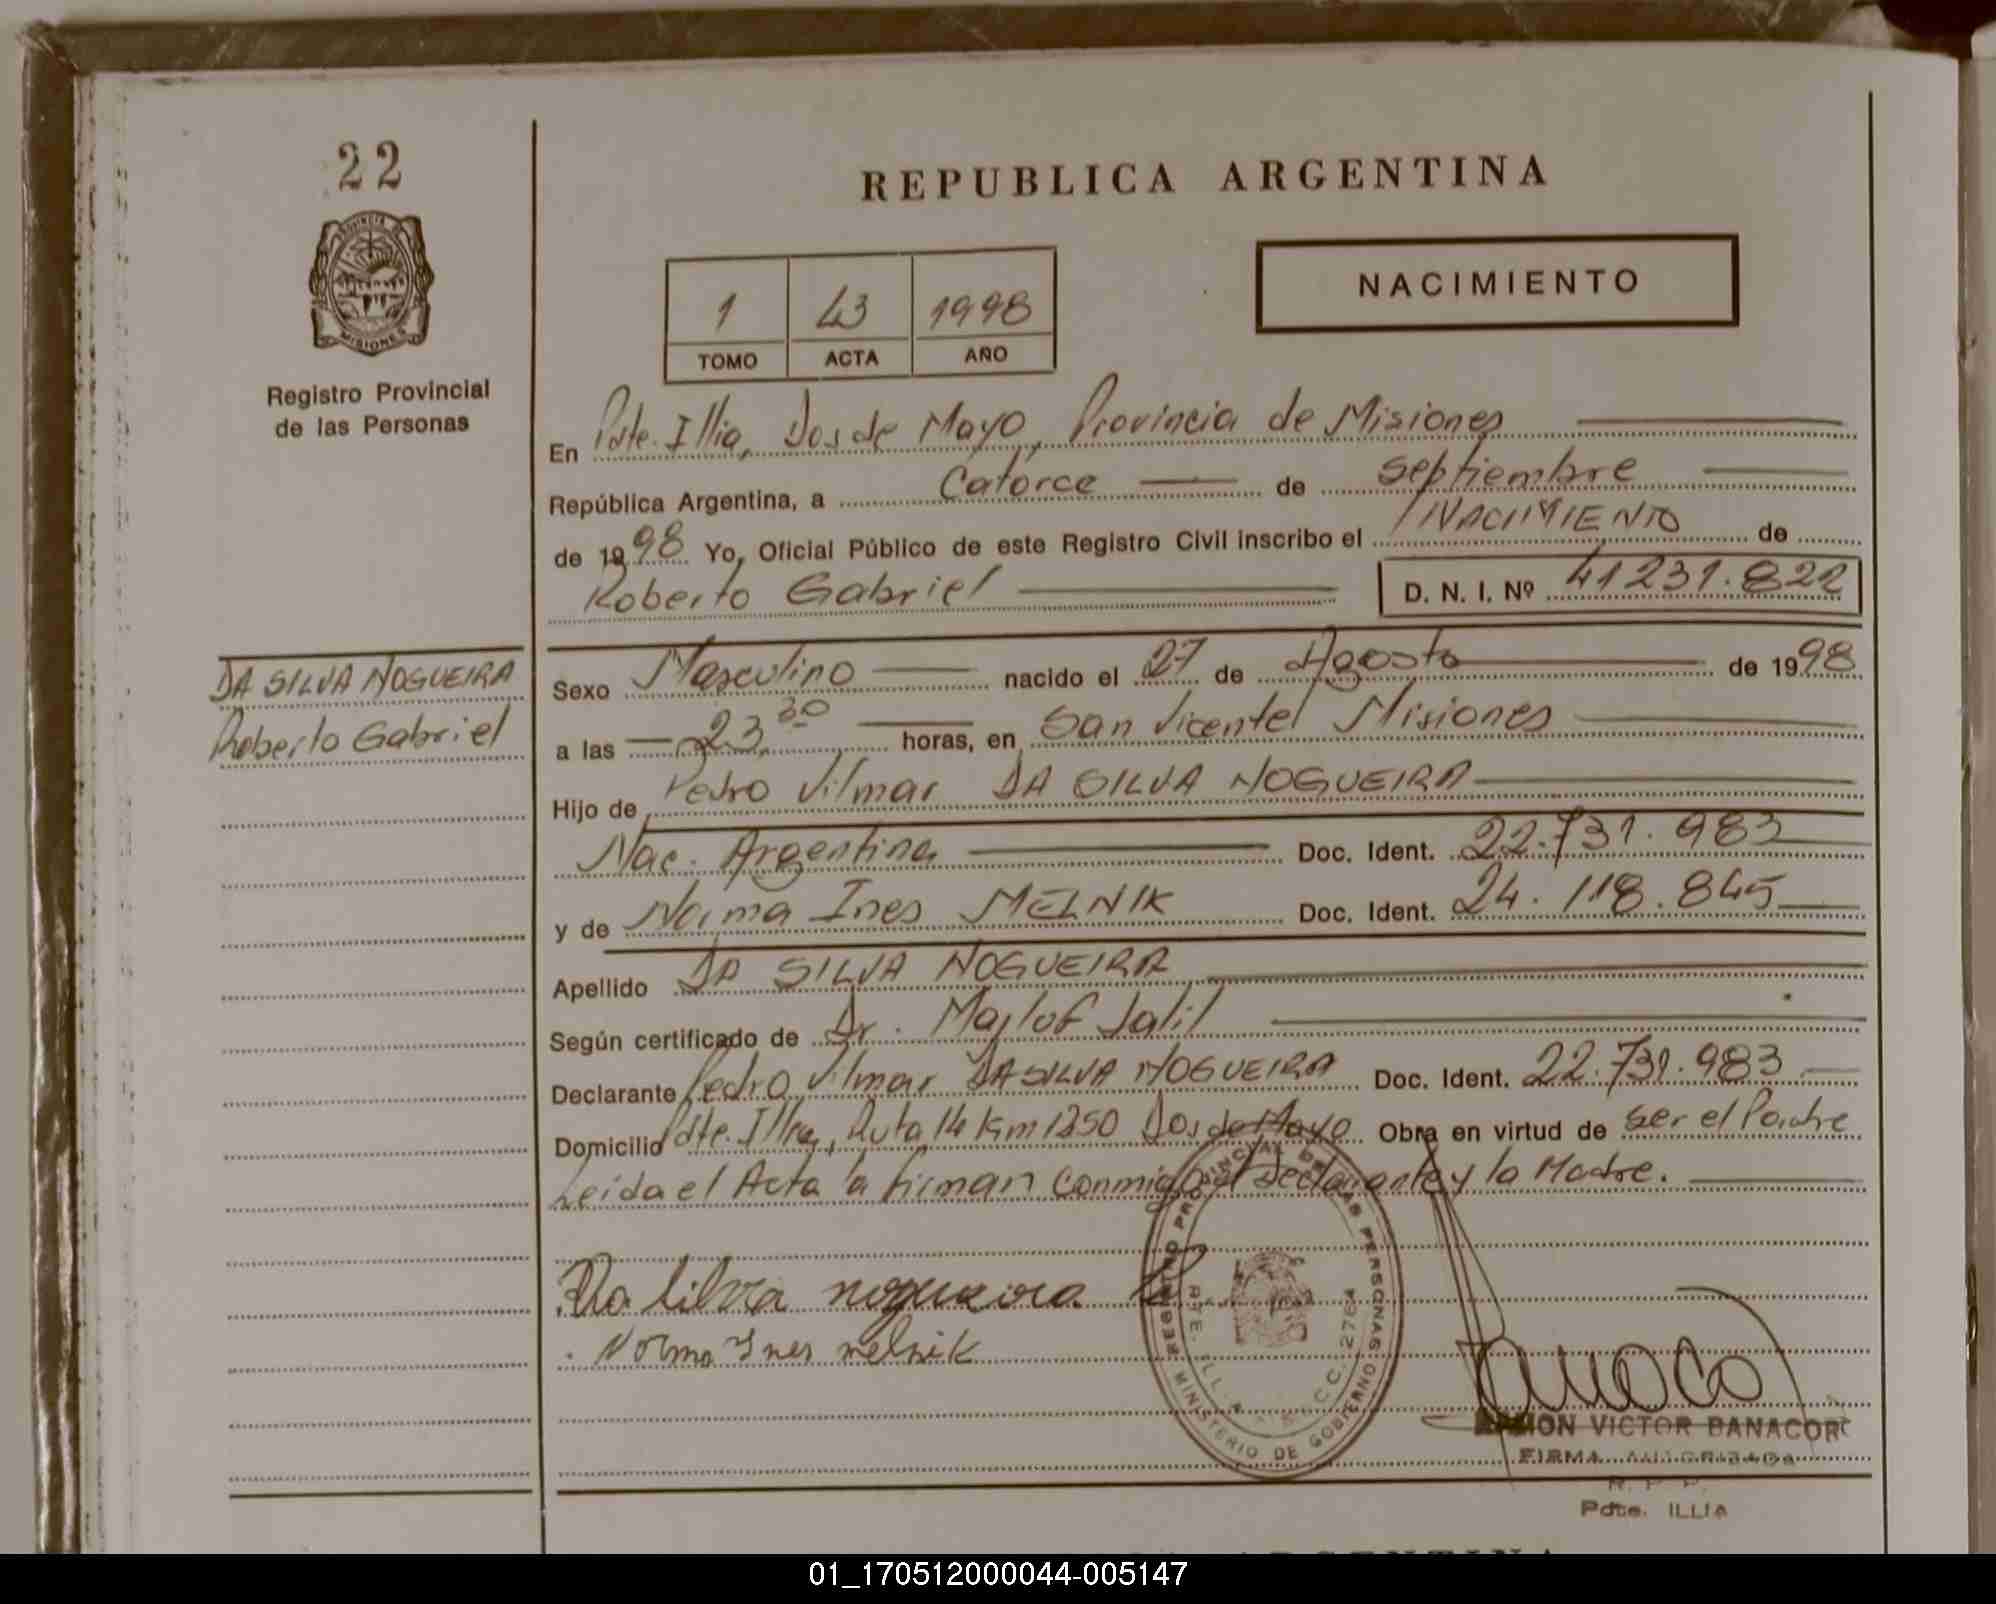 22
REPUBLICA ARGENTINA
PROVINCIA DE
MISIONES
Registro Provincial
de las Personas
1 43 1998
TOMO ACTA AÑO
NACIMIENTO
En Pdte. Illia, Dos de Mayo, Provincia de Misiones
República Argentina, a Catorce de septiembre
de 1998 Yo, Oficial Público de este Registro Civil inscribo el NACIMIENTO de
Roberto Gabriel D. N. I. Nº 41231.822
DA SILVA NOGUEIRA
Roberto Gabriel
Sexo Masculino nacido el 27 de Agosto de 1998
a las 23,30 horas, en San Vicente Misiones
Hijo de Pedro Vilmar DA SILVA NOGUEIRA
Nac. Argentina Doc. Ident. 22.731.983
y de Norma Ines MELNIK Doc. Ident. 24.118.845
Apellido DA SILVA NOGUEIRA
Según certificado de Dr. Majlof Jalil
Declarante Pedro Vilmar DA SILVA NOGUEIRA Doc. Ident. 22.731.983
Domicilio Pdte. Illia, Ruta 14 Km 1250 Dos de Mayo Obra en virtud de ser el Padre
Leida el Acta la firman Conmigo el Declarante y la Madre.
Da Silva nogueira
Norma Ines melnik
REGISTRO PROVINCIAL DE LAS PERSONAS
MINISTERIO DE GOBIERNO
RAMON VICTOR BANACOR
FIRMA AUTORIZADA
R. P. P.
Pdte. ILLIA
REPUBLICA ARGENTINA
01_170512000044-005147